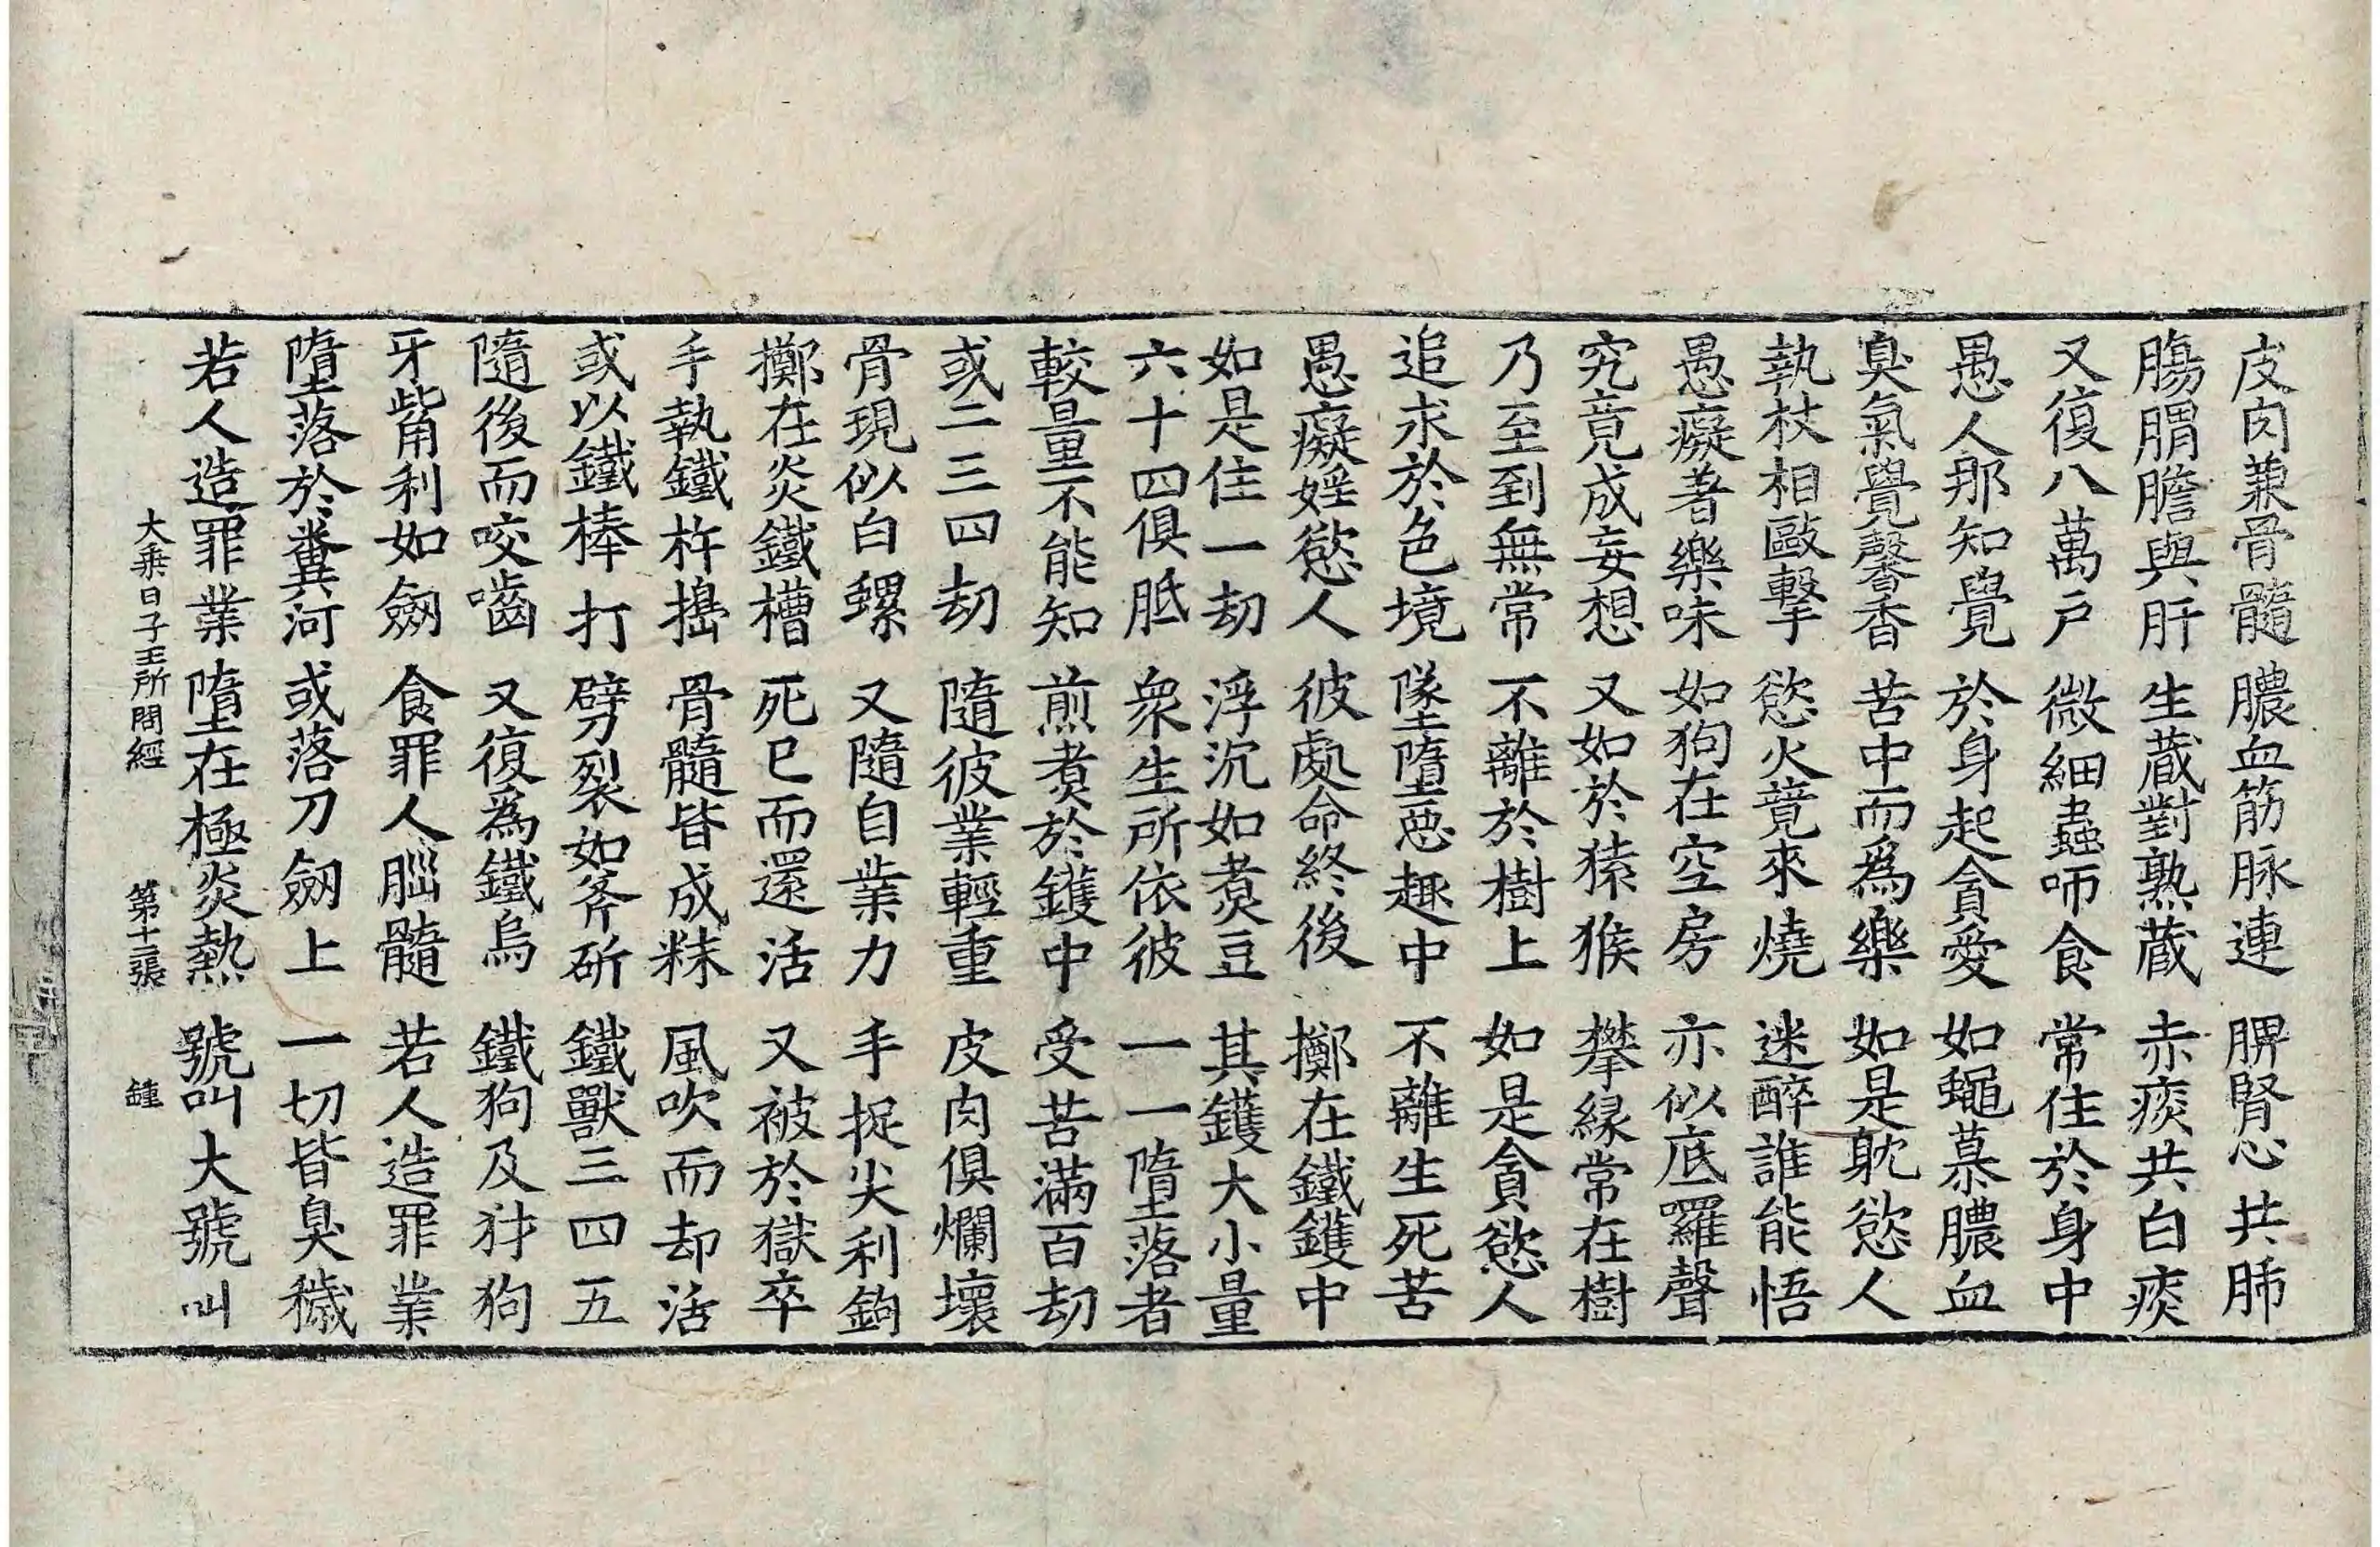 皮肉兼骨髓 膿血筋脉連 脾腎心共肺
腸䐜膽與肝 生蔵對熟蔵 赤痰共白痰
又復八萬戶 微細蟲咂食 常住於身中
愚人那知覺 於身起貪愛 如蠅慕膿血
臭氣覺馨香 苦中而為樂 如是躭慾人
執杖相毆擊 慾火竟來燒 迷醉誰能悟
愚癡著樂味 如狗在空房 亦似底羅聲
究竟成妄想 又如於猿猴 攀緣常在樹
乃至到無常 不離於樹上 如是貪慾人
追求於色境 墜墮惡趣中 不離生死苦
愚癡婬慾人 彼處命終後 擲在鐵鑊中
如是住一劫 浮沉如煑豆 其鑊大小量
六十四俱胝 衆生所依彼 一一墮落者
較量不能知 煎煑於鑊中 受苦滿百劫
或二三四劫 隨彼業輕重 皮肉俱爛壞
骨現似白螺 又隨自業力 手捉尖利鉤
擲在炎鐵槽 死已而還活 又被於獄卒
手執鐵杵擣 骨髓皆成粖 風吹而却活
或以鐵棒打 劈裂如斧斫 鐵獸三四五
隨後而咬嚙 又復為鐵烏 鐵狗及犲狗
牙觜利如劒 食罪人腦髓 若人造罪業
墮落於糞河 或落刀劒上 一切皆臭穢
若人造罪業 墮在極炎熱 號叫大號叫
大乗日子王所問經 第十二張 鍾